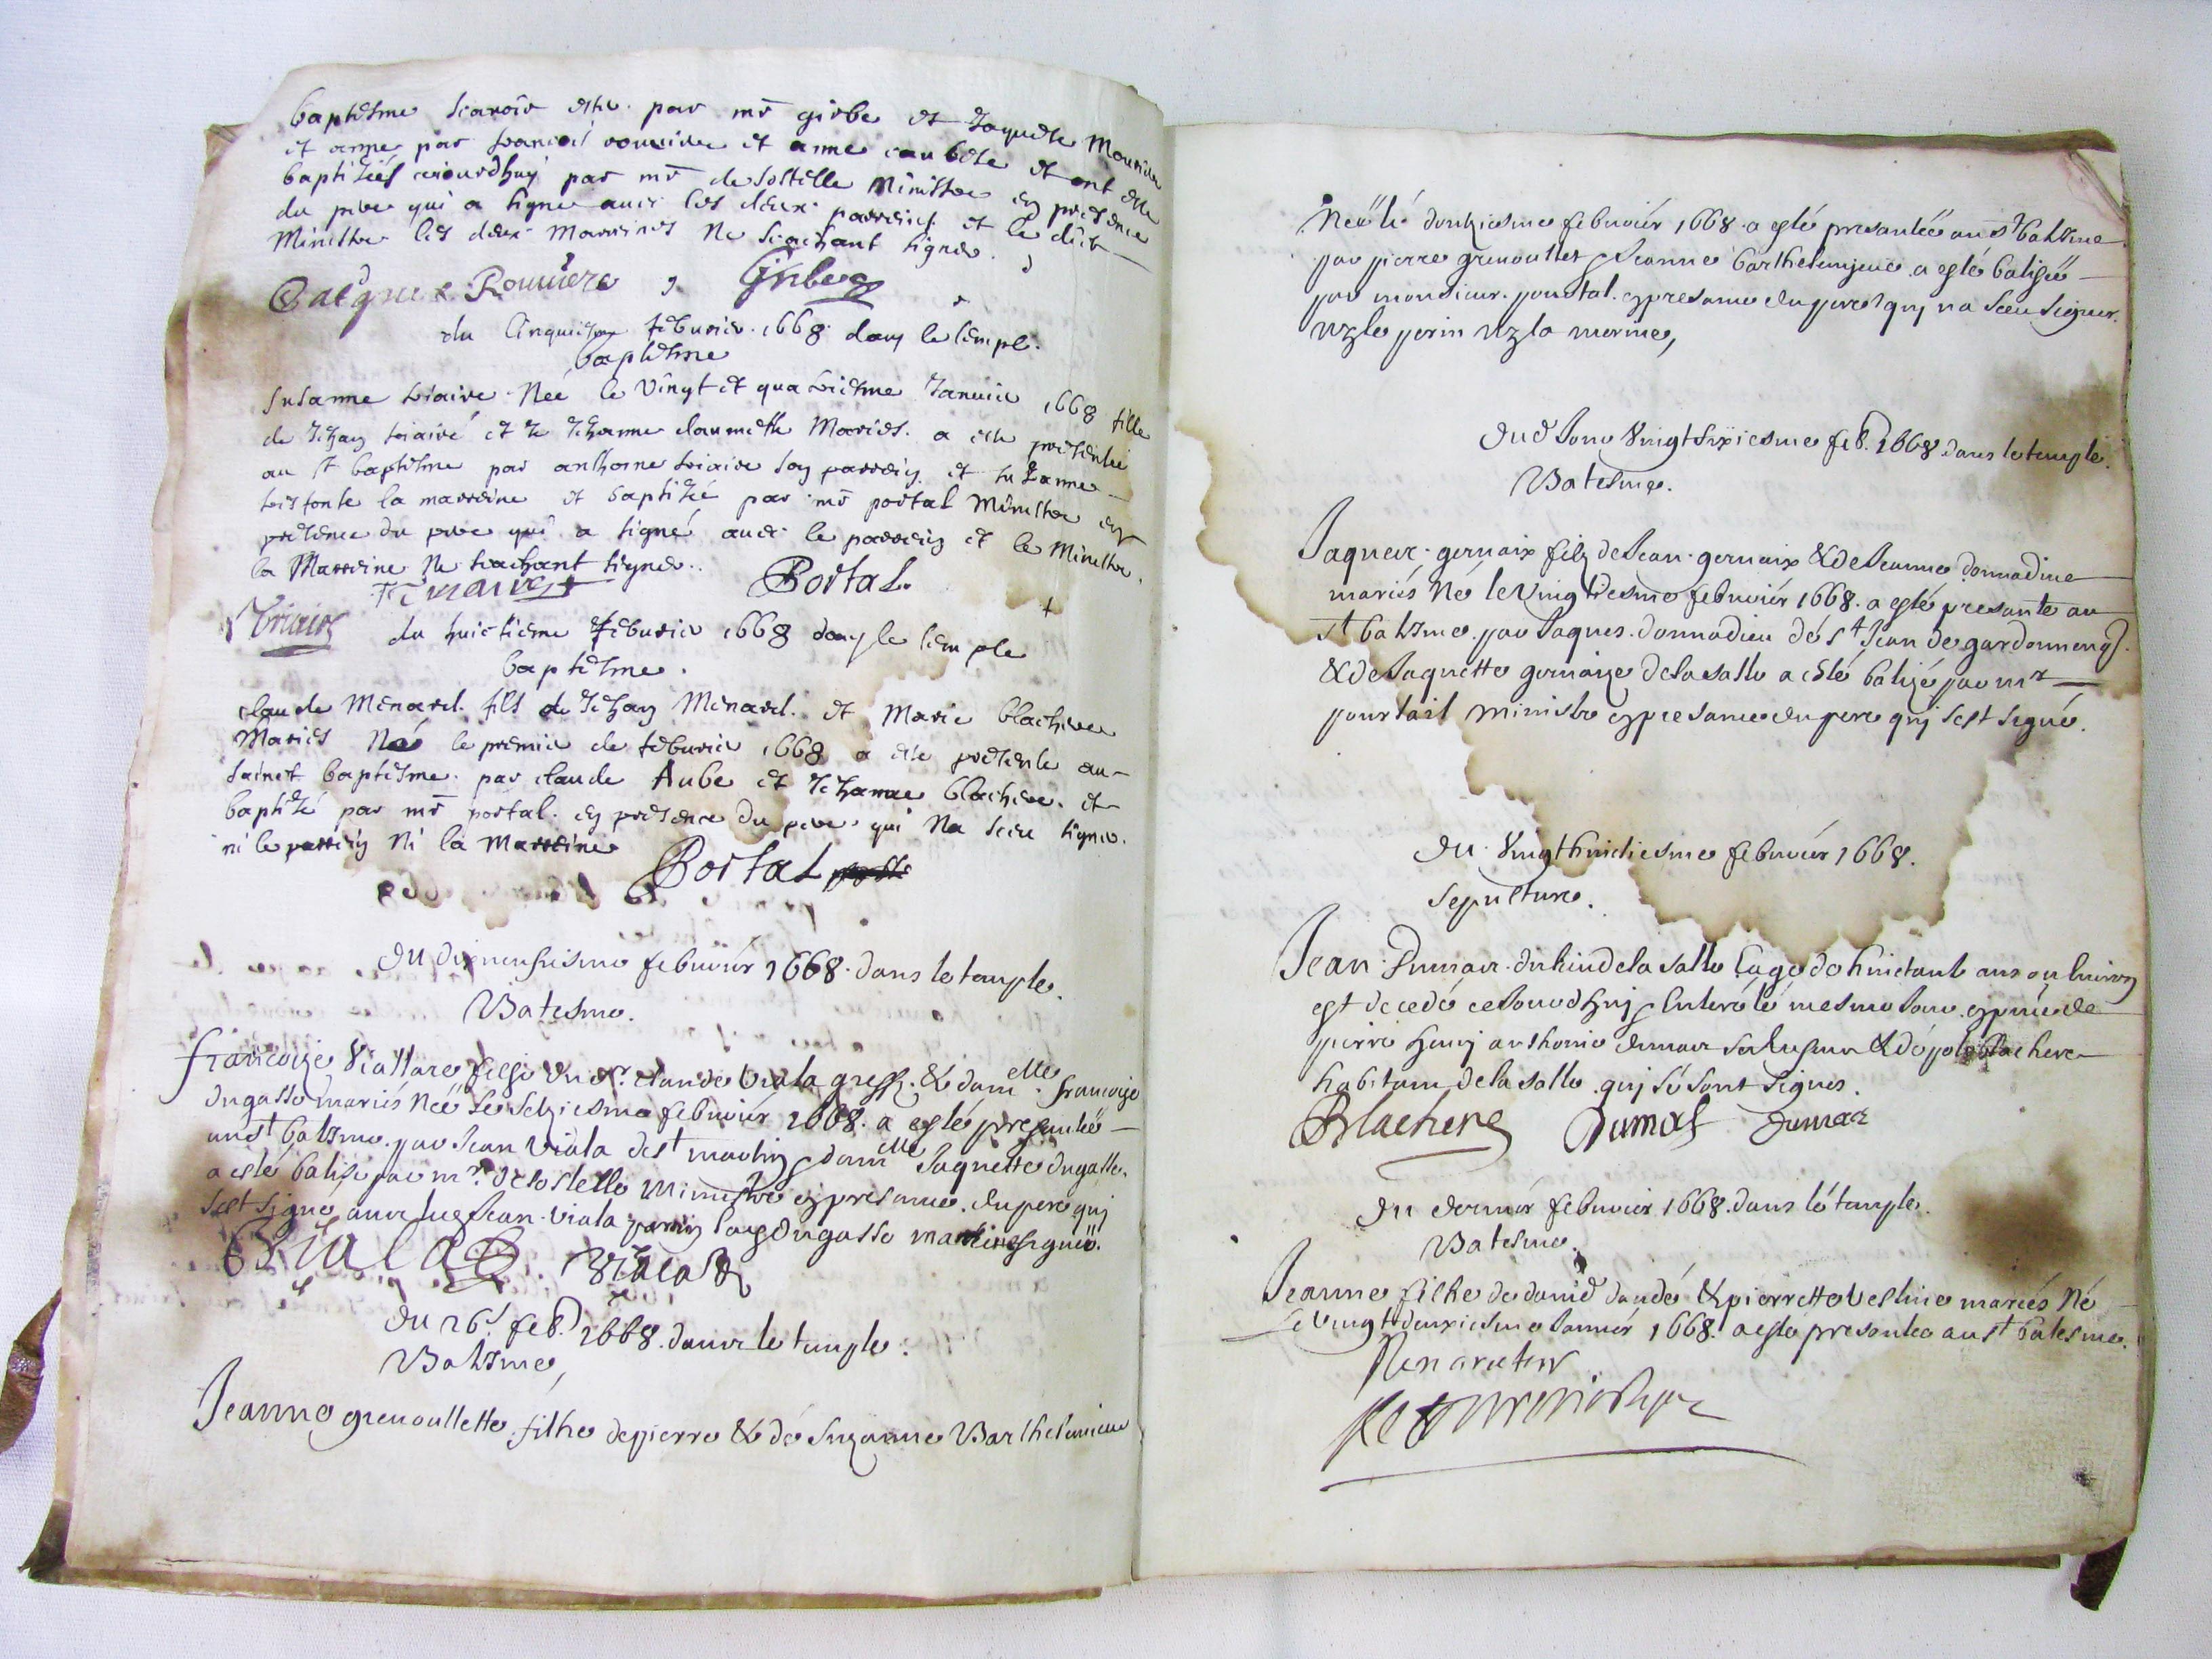 baptesme scavoir este par mr girbe et Jaquete
et anne par francoi rouviere et anne et ont este
baptisés aujourdhuy par mr de Sostelle Ministre en presence
du pere qui a signe avec les deux parreins et le dict
Ministre les deux marrines ne scachant signer.
Rouviere Girbe
du Cinquiesme feburier 1668 dans le temple
baptesme
Susanne Née le vingt et quatriesme Janvier 1668 fille
de Jehan et de Jehanne mariés a este presentée
au st baptesme par anthoine son parrein et suzanne
la marreine et baptisée par mr portal Ministre en
presence du pere qui a signé avec le parrein et le Ministre
la Marreine ne scachant signer.
Portal
du huictieme feburier 1668 dans le temple
baptesme.
claude Menard fils de Jehan Menard et Marie blachiere
Mariés Né le premier de feburier 1668 a este presente au
sainct baptesme par claude Aube et Jehanne blachiere et
baptisé par mr portal en presence du pere qui Na sceu signer
ni le parrein Ni la Marreine
Portal
Du febvrier 1668 dans le temple.
Batesme.
francoize Viallare filhe du sr claude Viala & damelle francoize
dugasse mariés Née le setziesme febvrier 1668. a esté presentée
au st batesme par Jean Viala de st martin & damelle Jaquette dugasse
a esté batisé par mr de sostelle Ministre en presance du pere quj
sest signé avec Jean Viala parrin dugasse marrine
Viala Viala
Du 26e feb. 1668 dans le temple.
Batesme,
Jeanne grenoullette filhe de pierre & de Suzanne Barthelemieue
Née le douziesme febvrier 1668 a esté presantée au st batesme
par pierre grenoullet & Jeanne barthelemieue a esté batisée
par monsieur pourtal en presance du pere quj na sceu signer
ny le perin ny la merine,
Dud. Jour Vingt sixiesme feb. 1668 dans le temple.
Batesme.
Jaques gervaix filz de Jean gervaix & de Jeanne donnadine
mariés Né le Vingtiesme febvrier 1668. a esté presante au
st batesme par Jaques donnadieu de st Jean de gardonnenq.
& de Jaquette gervaize de la salle a esté batizé par mr
pourtail ministre en presance du pere quj sest signé.
Du Vingt huictiesme febvrier 1668.
Sepulture.
Jean Dumas du lieu de la salle eagé de huictant ans ou
est decedé cejourdhuj & enterré le mesme jour en p[rese]nce de
pierre henrj anthoine dumas & de blachere
habitans de la salle quj se sont signes.
Blachere Dumas Dumas
Du dernier febvrier 1668. dans le temple.
Batesme.
Jeanne filhe de david daudé & pierrette mariés Né
le Vingt deuxiesme Janvier 1668. a esté presantée au st batesme.